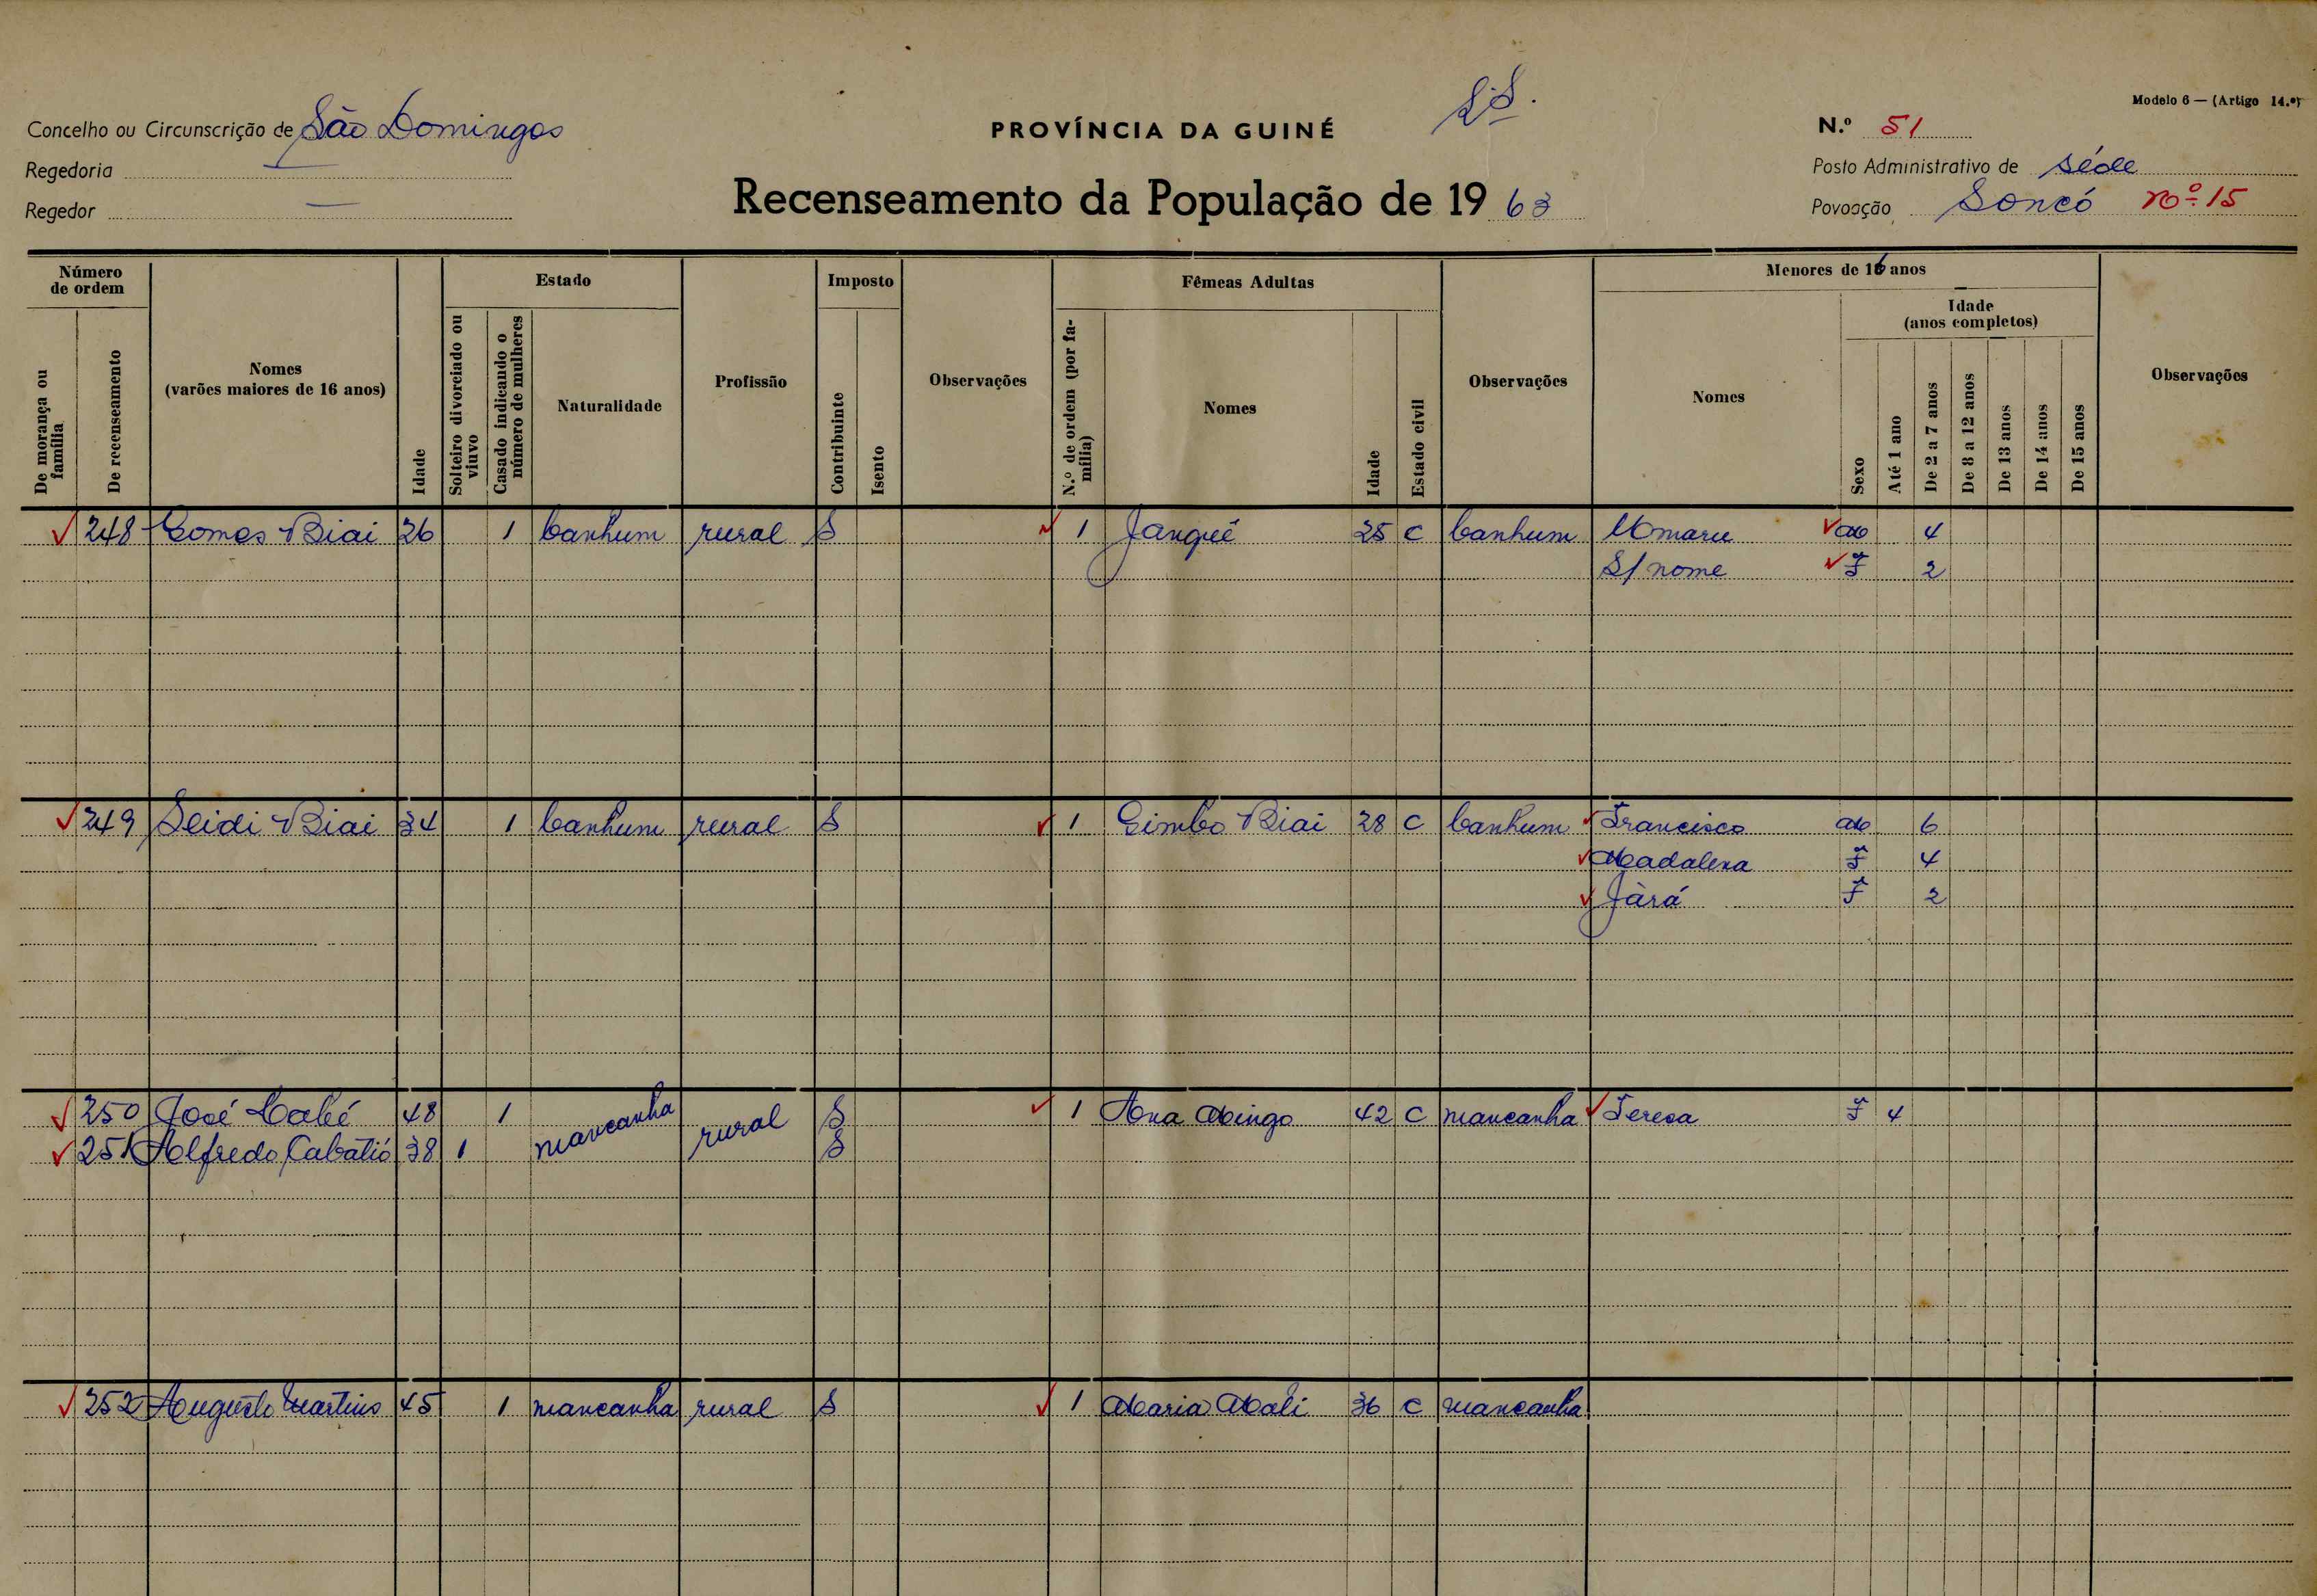 Modelo 6 — (Artigo 14.º)
Concelho ou Circunscrição de São Domingos
PROVÍNCIA DA GUINÉ
N.º 51
Regedoria —
Posto Administrativo de Séde
Regedor —
Recenseamento da População de 1963
Povoação Soncó nº 15
Número de ordem
De morança ou família
De recenseamento
Nomes
(varões maiores de 16 anos)
Idade
Estado
Solteiro divorciado ou viuvo
Casado indicando o número de mulheres
Naturalidade
Profissão
Imposto
Contribuinte
Isento
Observações
Fêmeas Adultas
N.º de ordem (por família)
Nomes
Idade
Estado civil
Observações
Menores de 16 anos
Nomes
Sexo
Idade
(anos completos)
Até 1 ano
De 2 a 7 anos
De 8 a 12 anos
De 13 anos
De 14 anos
De 15 anos
Observações
248 Gomes Biai 26 1 banhum rural S 1 Janqué 25 C banhum Umaru M 4
S/ nome F 2
249 Seidi Biai 34 1 banhum rural S 1 Gimbo Biai 28 C banhum Francisco M 6
Madalena F 4
Jàrá F 2
250 José Cabé 48 1 mancanha rural S 1 Ana Mingo 42 C mancanha Teresa F 4
251 Alfredo Cabatió 38 1 S
252 Augusto Martins 45 1 mancanha rural S 1 Maria Mali 36 C mancanha